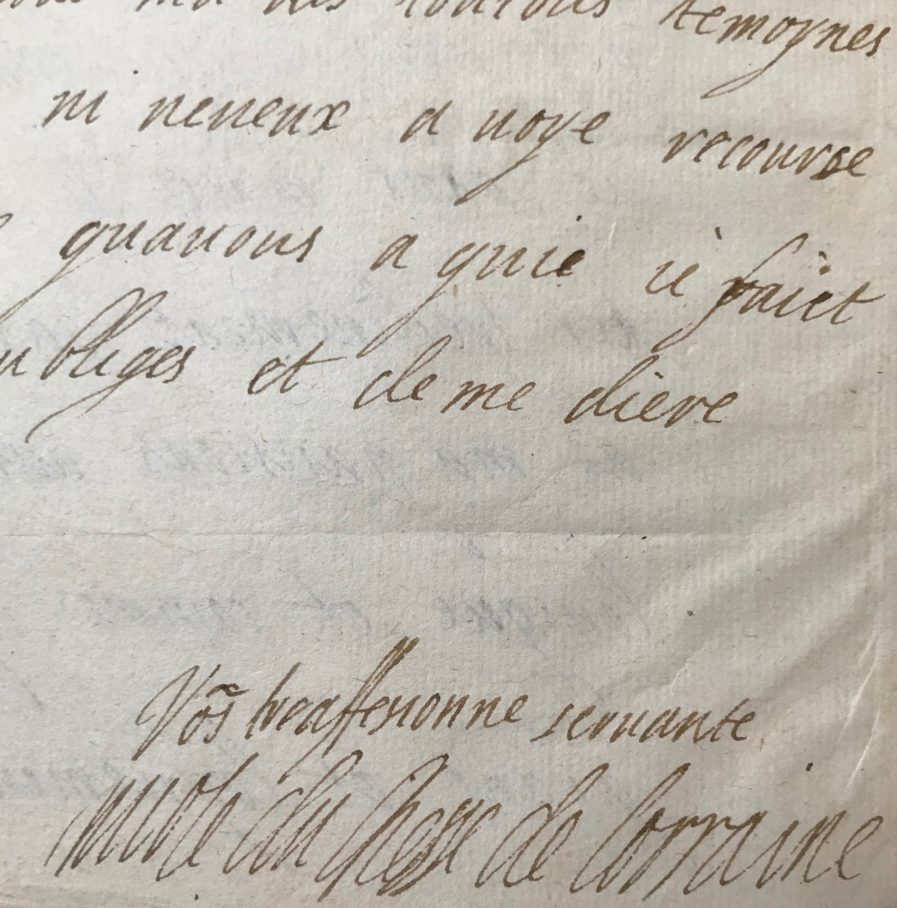 temoynes
ni neueux a uoye recourse
quauous a quie ie faict
oubliges et de me diere
Vos̃ treaffesionne seruante
nicole duchesse de lorraine